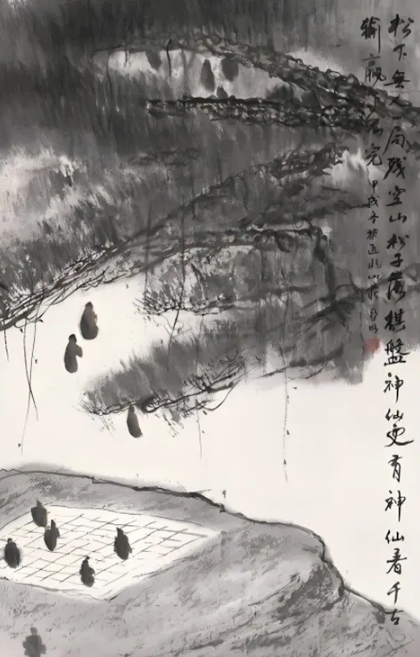 松下無人一局残空山松子落棋盤神仙更有神仙着千古
輸贏下不完 甲戌冬